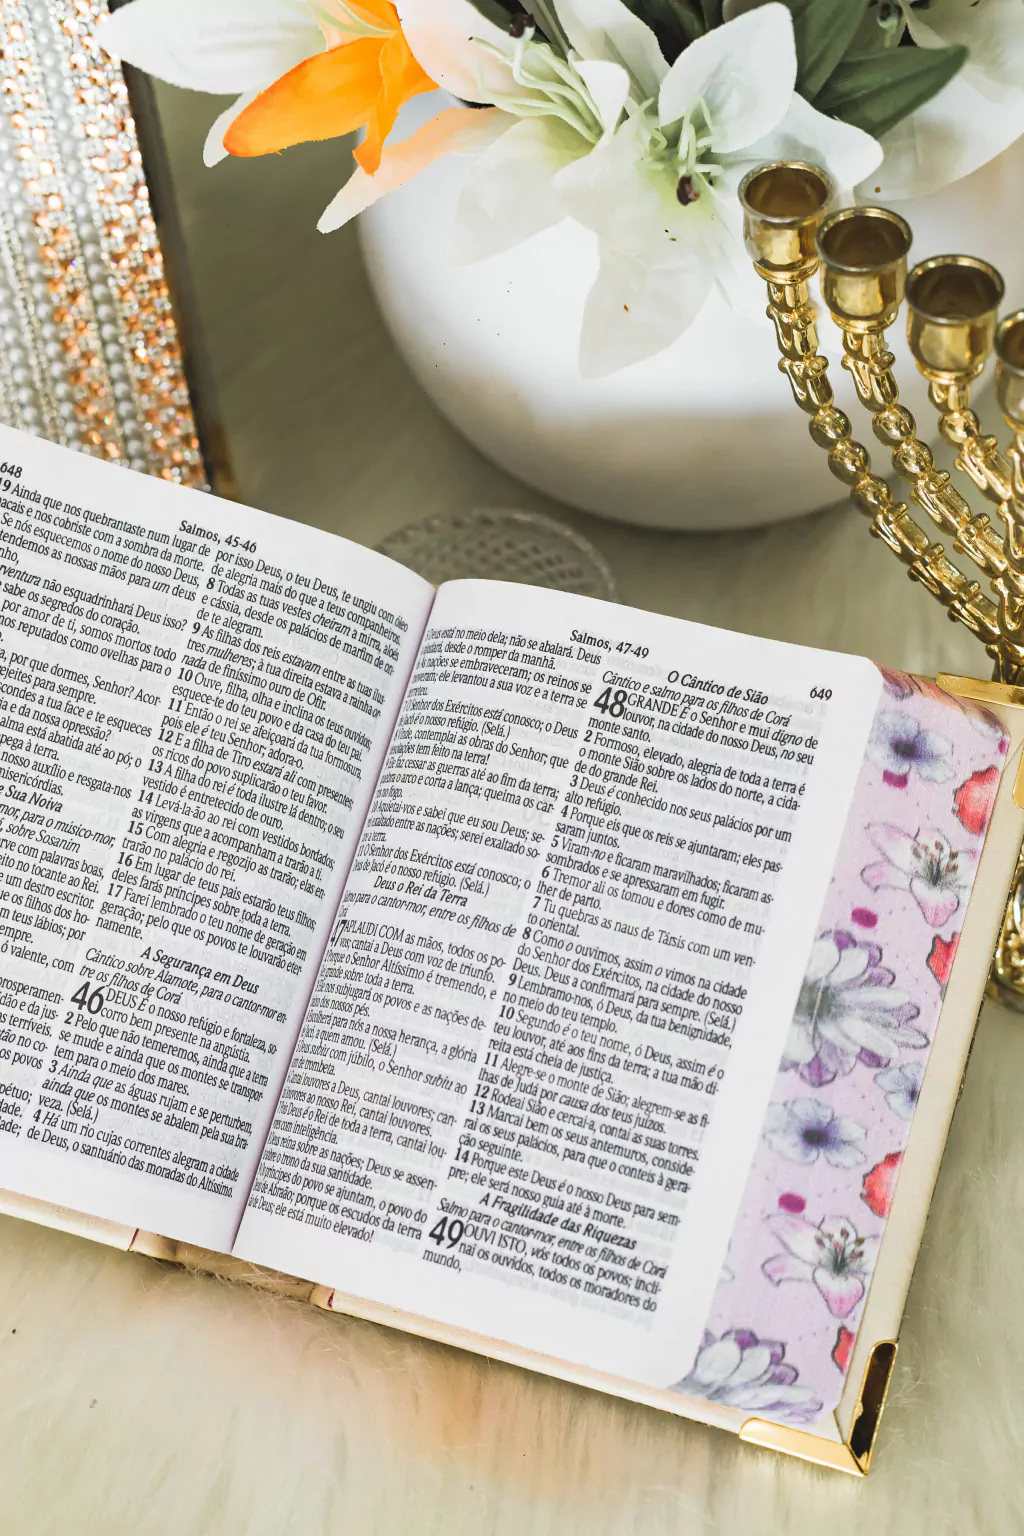 648
Salmos, 45-46
19 Ainda que nos quebrantaste num lugar de
e nos cobriste com a sombra da morte.
Se nós esquecemos o nome do nosso Deus,
tendemos as nossas mãos para um deus
não esquadrinhará Deus isso?
sabe os segredos do coração.
por amor de ti, somos mortos todo
reputados como ovelhas para o
por que dormes, Senhor? Acor-
rejeites para sempre.
a tua face e te esqueces
e da nossa opressão?
alma está abatida até ao pó; o
à terra.
nosso auxílio e resgata-nos
misericórdias.
e Sua Noiva
para o músico-mor,
sobre Sosanim
com palavras boas,
no tocante ao Rei.
um destro escritor.
os filhos dos ho-
teus lábios; por
ó valente, com
e da jus-
terríveis.
no co-
os povos
por isso Deus, o teu Deus, te ungiu com óleo
de alegria mais do que a teus companheiros.
8 Todas as tuas vestes cheiram a mirra, aloés
e cássia, desde os palácios de marfim de on-
de te alegram.
9 As filhas dos reis estavam entre as tuas ilus-
tres mulheres; à tua direita estava a rainha or-
nada de finíssimo ouro de Ofir.
10 Ouve, filha, olha e inclina os teus ouvidos;
esquece-te do teu povo e da casa do teu pai.
11 Então o rei se afeiçoará da tua formosura,
pois ele é teu Senhor; adora-o.
12 E a filha de Tiro estará ali com presentes;
os ricos do povo suplicarão o teu favor.
13 A filha do rei é toda ilustre lá dentro; o seu
vestido é entretecido de ouro.
14 Levá-la-ão ao rei com vestidos bordados;
as virgens que a acompanham a trarão a ti.
15 Com alegria e regozijo as trarão; elas en-
trarão no palácio do rei.
16 Em lugar de teus pais estarão teus filhos;
deles farás príncipes sobre toda a terra.
17 Farei lembrado o teu nome de geração em
geração; pelo que os povos te louvarão eter-
namente.
A Segurança em Deus
Cântico sobre Alamote, para o cantor-mor en-
tre os filhos de Corá
46 DEUS É o nosso refúgio e fortaleza, so-
corro bem presente na angústia.
2 Pelo que não temeremos, ainda que a terra
se mude e ainda que os montes se transpor-
tem para o meio dos mares.
3 Ainda que as águas rujam e se perturbem,
ainda que os montes se abalem pela sua bra-
veza. (Selá.)
4 Há um rio cujas correntes alegram a cidade
de Deus, o santuário das moradas do Altíssimo.
Salmos, 47-49
649
Deus está no meio dela; não se abalará. Deus
desde o romper da manhã.
As nações se embraveceram; os reinos se
moveram; ele levantou a sua voz e a terra se
O Senhor dos Exércitos está conosco; o Deus
de Jacó é o nosso refúgio. (Selá.)
Vinde, contemplai as obras do Senhor; que
desolações tem feito na terra!
Ele faz cessar as guerras até ao fim da terra;
quebra o arco e corta a lança; queima os car-
no fogo.
10 Aquietai-vos e sabei que eu sou Deus; se-
exaltado entre as nações; serei exaltado so-
a terra.
O Senhor dos Exércitos está conosco; o
Deus de Jacó é o nosso refúgio. (Selá.)
Deus o Rei da Terra
Salmo para o cantor-mor, entre os filhos de
Corá
47 APLAUDI COM as mãos, todos os po-
vos; cantai a Deus com voz de triunfo.
Porque o Senhor Altíssimo é tremendo, e
grande sobre toda a terra.
Ele nos subjugará os povos e as nações de-
dos nossos pés.
para nós a nossa herança, a glória
Jacó, a quem amou. (Selá.)
Deus subiu com júbilo, o Senhor subiu ao
de trombeta.
Cantai louvores a Deus, cantai louvores; can-
louvores ao nosso Rei, cantai louvores.
Deus é o Rei de toda a terra, cantai lou-
com inteligência.
Deus reina sobre as nações; Deus se assen-
sobre o trono da sua santidade.
Os príncipes do povo se ajuntam, o povo do
Deus de Abraão; porque os escudos da terra
de Deus; ele está muito elevado!
O Cântico de Sião
Cântico e salmo para os filhos de Corá
48 GRANDE É o Senhor e mui digno de
louvor, na cidade do nosso Deus, no seu
monte santo.
2 Formoso, elevado, alegria de toda a terra é
o monte Sião sobre os lados do norte, a cida-
de do grande Rei.
3 Deus é conhecido nos seus palácios por um
alto refúgio.
4 Porque eis que os reis se ajuntaram; eles pas-
saram juntos.
5 Viram-no e ficaram maravilhados; ficaram as-
sombrados e se apressaram em fugir.
6 Tremor ali os tomou e dores como de mu-
lher de parto.
7 Tu quebras as naus de Társis com um ven-
to oriental.
8 Como o ouvimos, assim o vimos na cidade
do Senhor dos Exércitos, na cidade do nosso
Deus. Deus a confirmará para sempre. (Selá.)
9 Lembramo-nos, ó Deus, da tua benignidade,
no meio do teu templo.
10 Segundo é o teu nome, ó Deus, assim é o
teu louvor, até aos fins da terra; a tua mão di-
reita está cheia de justiça.
11 Alegre-se o monte de Sião; alegrem-se as fi-
lhas de Judá por causa dos teus juízos.
12 Rodeai Sião e cercai-a, contai as suas torres.
13 Marcai bem os seus antemuros, conside-
rai os seus palácios, para que o conteis à gera-
ção seguinte.
14 Porque este Deus é o nosso Deus para sem-
pre; ele será nosso guia até à morte.
A Fragilidade das Riquezas
Salmo para o cantor-mor, entre os filhos de Corá
49 OUVI ISTO, vós todos os povos; incli-
nai os ouvidos, todos os moradores do
mundo,